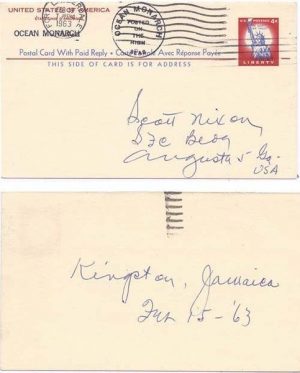 UNITED STATES OF AMERICA
OCEAN MONARCH
1963
OCEAN MONARCH
POSTED
ON
THE
HIGH
SEAS
4¢
LIBERTY
Postal Card With Paid Reply • Carte Postale Avec Réponse Payée
THIS SIDE OF CARD IS FOR ADDRESS
Scott Nixon
SFC Bldg
Augusta 5 Ga.
USA
Kingston, Jamaica
15-'63